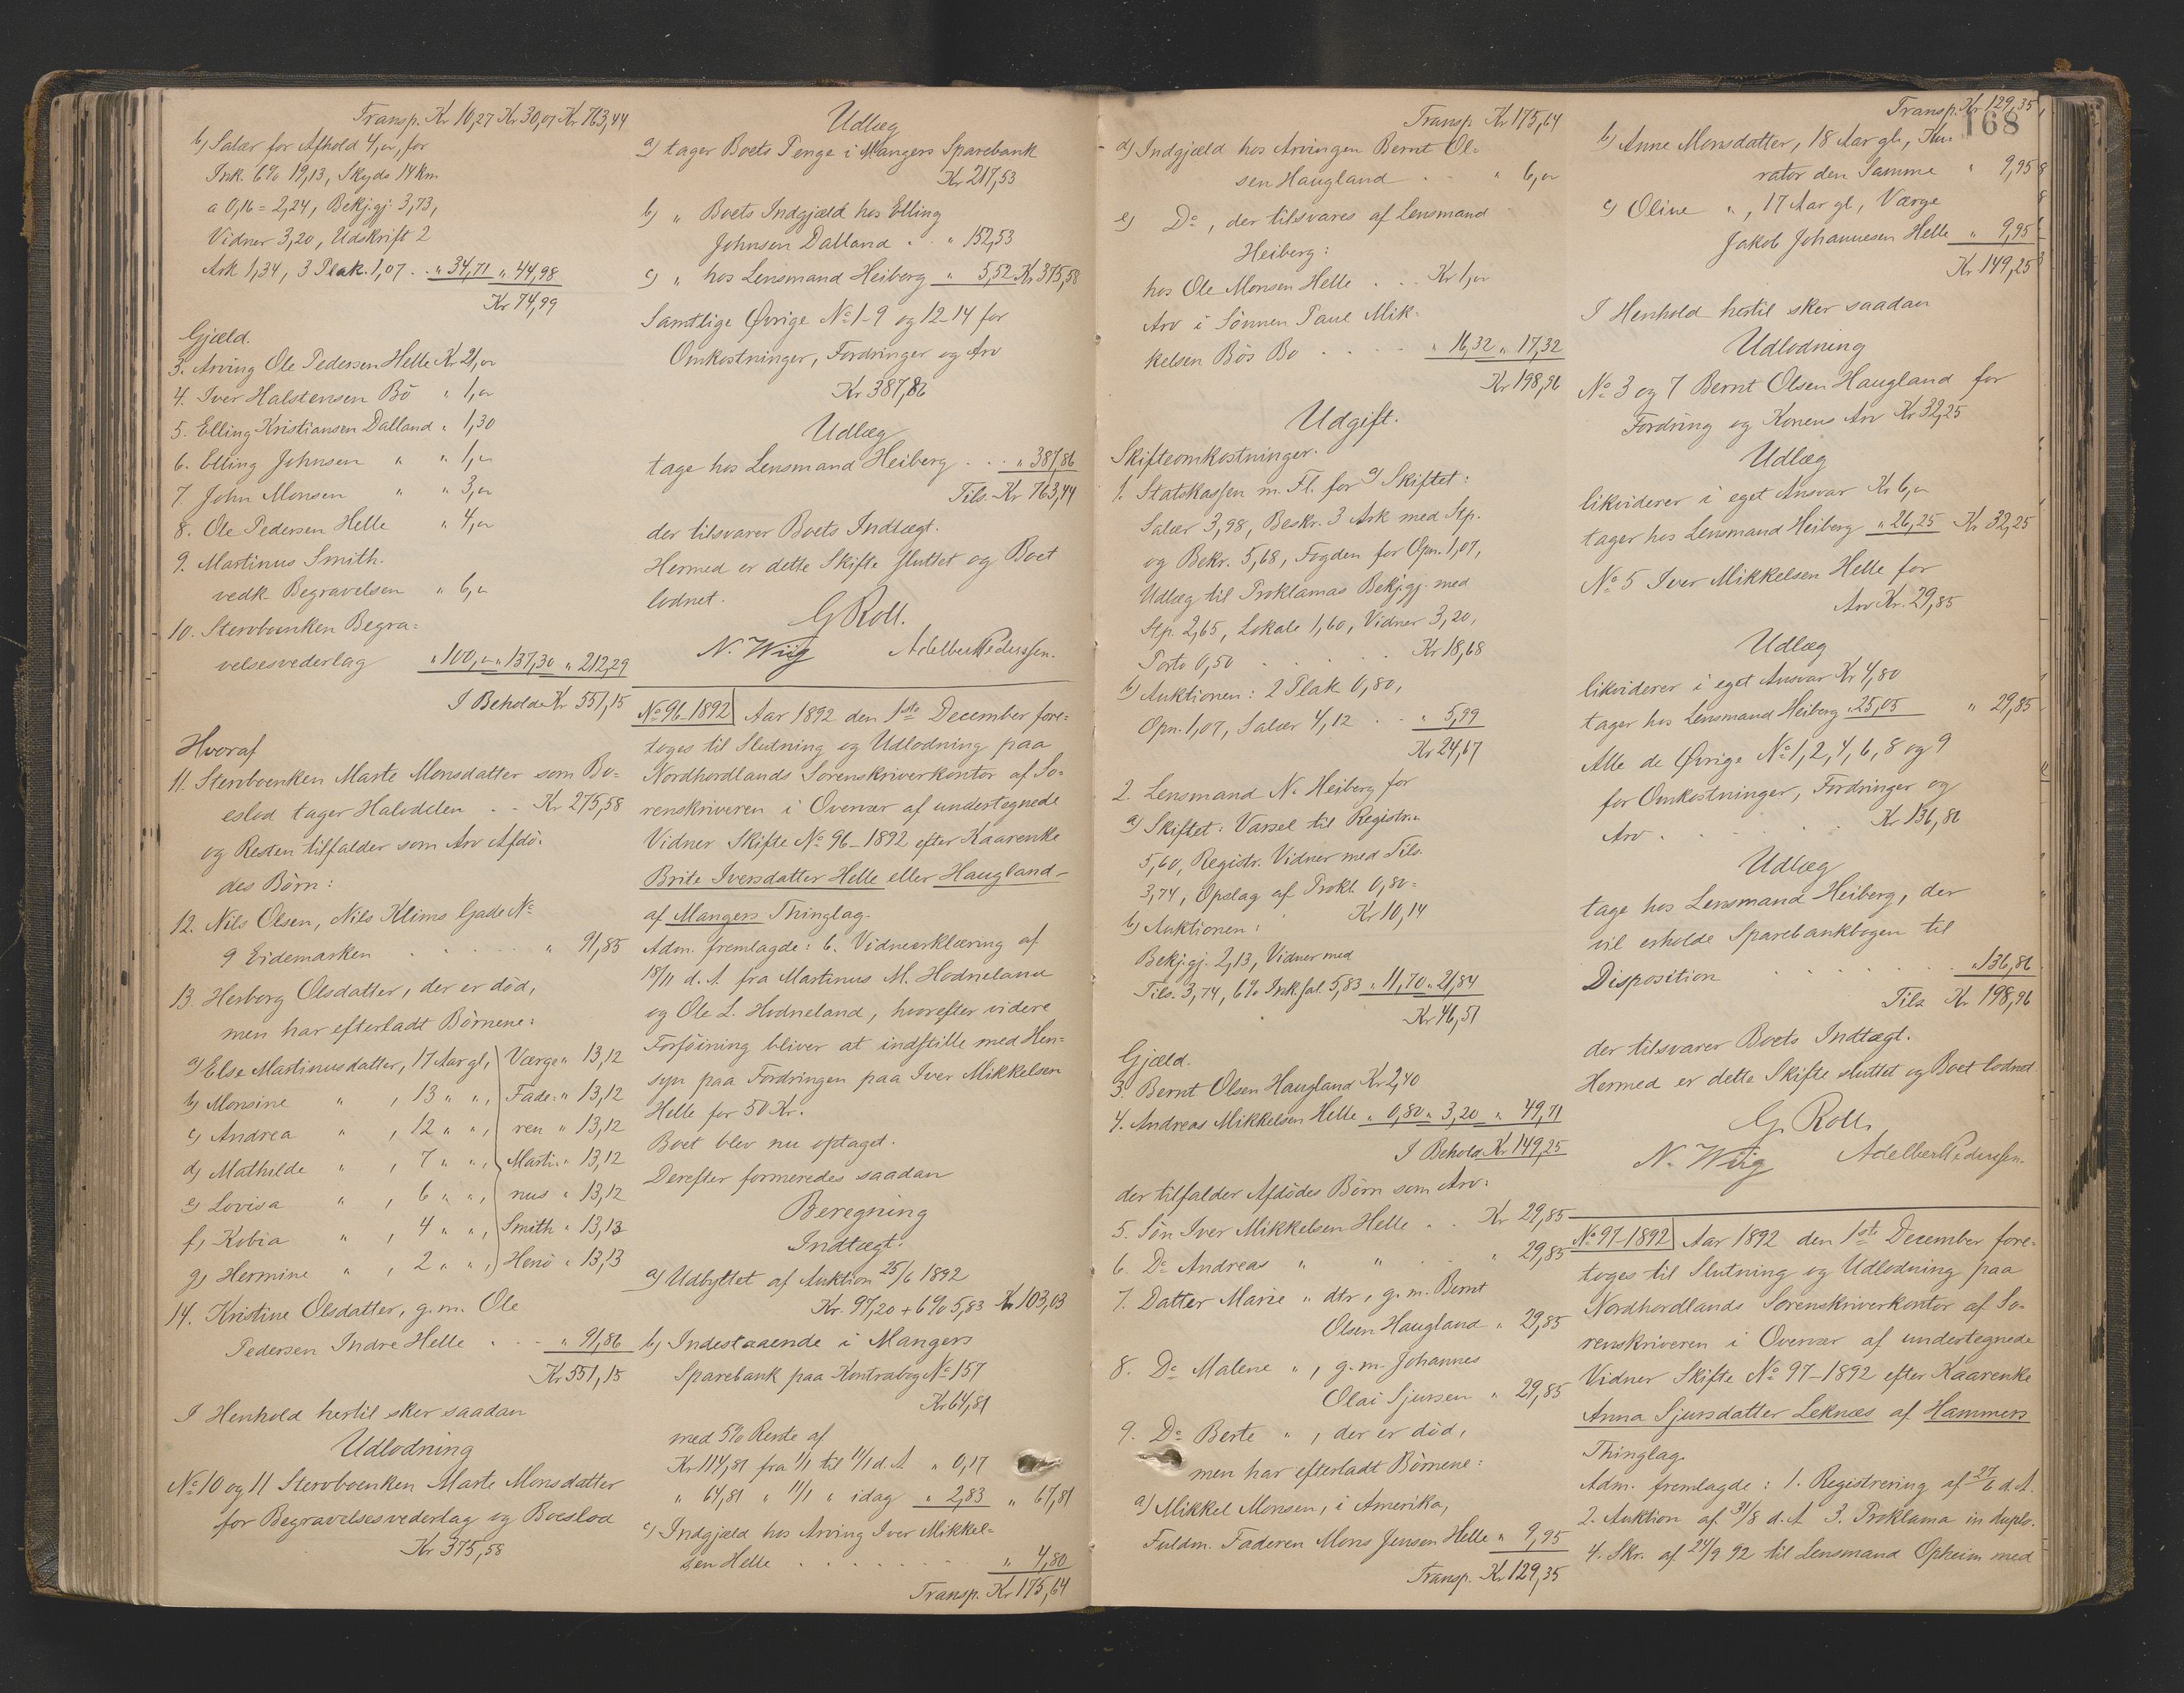 Transp. Kr 10,27 Kr 30,01 Kr 763,44
b) Salær for Afhold 4,„, for
Ink. 6% 19,13, Skyds 14 km
a 0,16 = 2,24, Bekj.gj. 3,73,
Vidner 3,20, Udskrift 2
Ark 1,34, 3 Plak. 1,07 . . „ 34,71 „ 44,98
Kr 74,99
Gjæld.
3. Arving Ole Pedersen Helle Kr 21,„
4. Iver Halstensen Bö „ 1,„
5. Elling Kristiansen Dalland „ 1,30
6. Elling Johnsen „ „ 1,„
7. John Monsen „ „ 3,„
8. Ole Pedersen Helle „ 4,„
9. Martinus Smith.
vedk. Begravelsen „ 6,„
10. Stervboenken Begra=
velsesvederlag „ 100,„ „ 137,30 „ 212,29
I Behold Kr 551,15
Hvoraf
11. Stervboenken Marte Monsdatter som Bo=
eslod tager Halvdelen . . Kr 275,58
og Resten tilfalder som Arv Afdö-
des Börn:
12. Nils Olsen, Nils Klims Gade No
9 Eidemarken . . . . „ 91,85
13. Herborg Olsdatter, der er död,
men har efterladt Börnene:
a) Else Martinusdatter, 17 Aar gl, Værge „ 13,12
b) Monsine „ , 13 „ „, Fade= „ 13,12
c) Andrea „ , 12 „ „, ren „ 13,12
d) Mathilde „ , 7 „ „, Marti= „ 13,12
e) Lovisa „ , 6 „ „, nus „ 13,12
f) Kobia „ , 4 „ „, Smith „ 13,13
g) Hermine „ , 2 „ „, Henö „ 13,13
14. Kristine Olsdatter, g.m. Ole
Pedersen Indre Helle . . . „ 91,86
Kr 551,15
I Henhold hertil sker saadan
Udlodning
No 10 og 11 Stervboenken Marte Monsdatter
for Begravelsesvederlag og Boeslod
Kr 375,58
Udlæg
a) tager Boets Penge i Mangers Sparebank
Kr 217,53
b) „ Boets Indgjæld hos Elling
Johnsen Dalland . . „ 152,53
c) „ hos Lensmand Heiberg „ 5,52 Kr 375,58
Samtlige Övrige No 1-9 og 12-14 for
Omkostninger, Fordringer og Arv
Kr 387,86
Udlæg
tage hos Lensmand Heiberg . . . „ 387,86
Tils. Kr 763,44
der tilsvarer Boets Indtægt.
Hermed er dette Skifte sluttet og Boet
lodnet.
G Roll.
N. Wiig Adelbert Pedersen.
No 96-1892 Aar 1892 den 1ste December fore=
toges til Slutning og Udlodning paa
Nordhordlands Sorenskriverkontor af So=
renskriveren i Overvær af undertegnede
Vidner Skifte No 96-1892 efter Kaarenke
Brite Iversdatter Helle eller Haugland
af Mangers Thinglag.
Adm. fremlagde: 6. Vidneerklæring af
18/11 d. A. fra Martinus M. Hodneland
og Ole L. Hodneland, hvorefter videre
Forföining bliver at indstille med Hen=
syn paa Fordringen paa Iver Mikkelsen
Helle for 50 Kr.
Boet blev nu optaget.
Derefter formeredes saadan
Beregning
Indtægt:
a) Udbyttet af Auktion 25/6 1892
Kr. 97,20 + 6% 5,83 Kr 103,03
b) Indestaaende i Mangers
Sparebank paa Kontrabog No 157
Kr 64,81
med 5% Rente af
Kr 114,81 fra 1/1 til 11/1 d. A „ 0,17
„ 64,81 „ 11/1 „ idag „ 2,83 „ 67,81
c) Indgjæld hos Arving Iver Mikkel=
sen Helle . . . . . . . „ 4,80
Transp. Kr 175,64
Transp. Kr 175,64
d) Indgjæld hos Arvingen Bernt Ol=
sen Haugland . . . „ 6,„
e) Do, der tilsvares af Lensmand
Heiberg:
hos Ole Monsen Helle . . . Kr 1,„
Arv i Sönnen Paul Mik-
kelsen Bös Bo . . . . „ 16,32 „ 17,32
Kr 198,96
Udgift.
Skifteomkostninger.
1. Statskassen m. Fl. for a) Skiftet:
Salær 3,98, Beskr. 3 Ark med Stp.
og Bekr. 5,68, Fogden for Opn. 1,07,
Udlæg til Proklamas Bekj.gj. med
Stp. 2,65, Lokale 1,60, Vidner 3,20,
Porto 0,50 . . . . . Kr 18,68
b) Auktionen: 2 Plak. 0,80,
Opn. 1,07, Salær 4,12 . . . „ 5,99
Kr 24,67
2. Lensmand N. Heiberg for
a) Skiftet: Varsel til Registr.
5,60, Registr. Vidner med Tils.
3,74, Opslag af Prokl. 0,80 =
Kr 10,14
b) Auktionen:
Bekj.gj. 2,13, Vidner med
Tils. 3,74, 6% Ink.sal. 5,83 „ 11,70 „ 21,84
Kr 46,51
Gjæld.
3. Bernt Olsen Haugland Kr 2,40
4. Andreas Mikkelsen Helle „ 0,80 „ 3,20 „ 49,71
I Behold Kr 149,25
der tilfalder Afdödes Börn som Arv:
5. Sön Iver Mikkelsen Helle . . Kr 29,85
6. Do Andreas „ „ . . „ 29,85
7. Datter Marie „ dtr, g. m. Bernt
Olsen Haugland „ 29,85
8. Do Malene „, g. m. Johannes
Olai Sjursen „ 29,85
9. Do Berte „, der er död,
men har efterladt Börnene:
a) Mikkel Monsen, i Amerika,
Fuldm. Faderen Mons Jensen Helle „ 9,95
Transp. Kr 129,35
Transp. Kr 129,35
168
b) Anne Monsdatter, 18 Aar gl, Ku-
rator den Samme „ 9,95
c) Oline „, 17 Aar gl, Værge
Jakob Johannesen Helle „ 9,95
Kr 149,25
I Henhold hertil sker saadan
Udlodning
No 3 og 7 Bernt Olsen Haugland for
Fordring og Konens Arv Kr 32,25
Udlæg
likviderer i eget Ansvar Kr 6,„
tager hos Lensmand Heiberg „ 26,25 Kr 32,25
No 5 Iver Mikkelsen Helle for
Arv Kr. 29,85
Udlæg
likviderer i eget Ansvar Kr 4,80
tager hos Lensmand Heiberg „ 25,05 „ 29,85
Alle de Övrige No 1, 2, 4, 6, 8 og 9
for Omkostninger, Fordringer og
Arv . . . . . . Kr 136,86
Udlæg
tage hos Lensmand Heiberg, der
vil erholde Sparebankbogen til
Disposition . . . . . . „ 136,86
Tils. Kr 198,96
der tilsvarer Boets Indtægt.
Hermed er dette Skifte sluttet og Boet lodnet.
G. Roll.
N. Wiig Adelbert Pedersen.
No 97-1892 Aar 1892 den 1ste December fore=
toges til Slutning og Udlodning paa
Nordhordlands Sorenskriverkontor af So-
renskriveren i Overvær af undertegnede
Vidner Skifte No 97-1892 efter Kaarenke
Anna Sjursdatter Leknæs af Hammers
Thinglag.
Adm. fremlagde: 1. Registrering af 27/6 d. A.
2. Auktion af 31/8 d. A 3. Proklama in duplo.
4. Skr. af 24/9 92 til Lensmand Opheim med